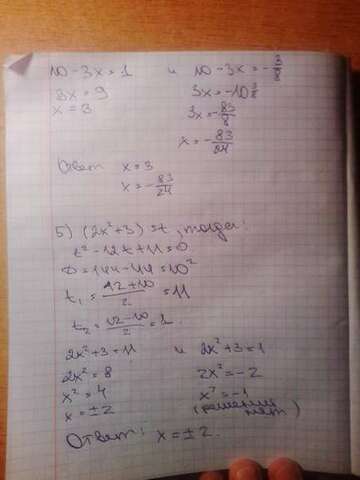 10-3x=1 и 10-3x=-3/8
3x=9 3x=-10 3/8
x=3 3x=-83/8
x=-83/24
Ответ x=3
x=-83/24
5) (2x²+3)=t, тогда:
t²-12t+11=0
D=144-44=10²
t₁=12+10/2=11
t₂=12-10/2=1.
2x²+3=11 и 2x²+3=1
2x²=8 2x²=-2
x²=4 x²=-1
x=±2 (решений нет)
Ответ: x=±2.